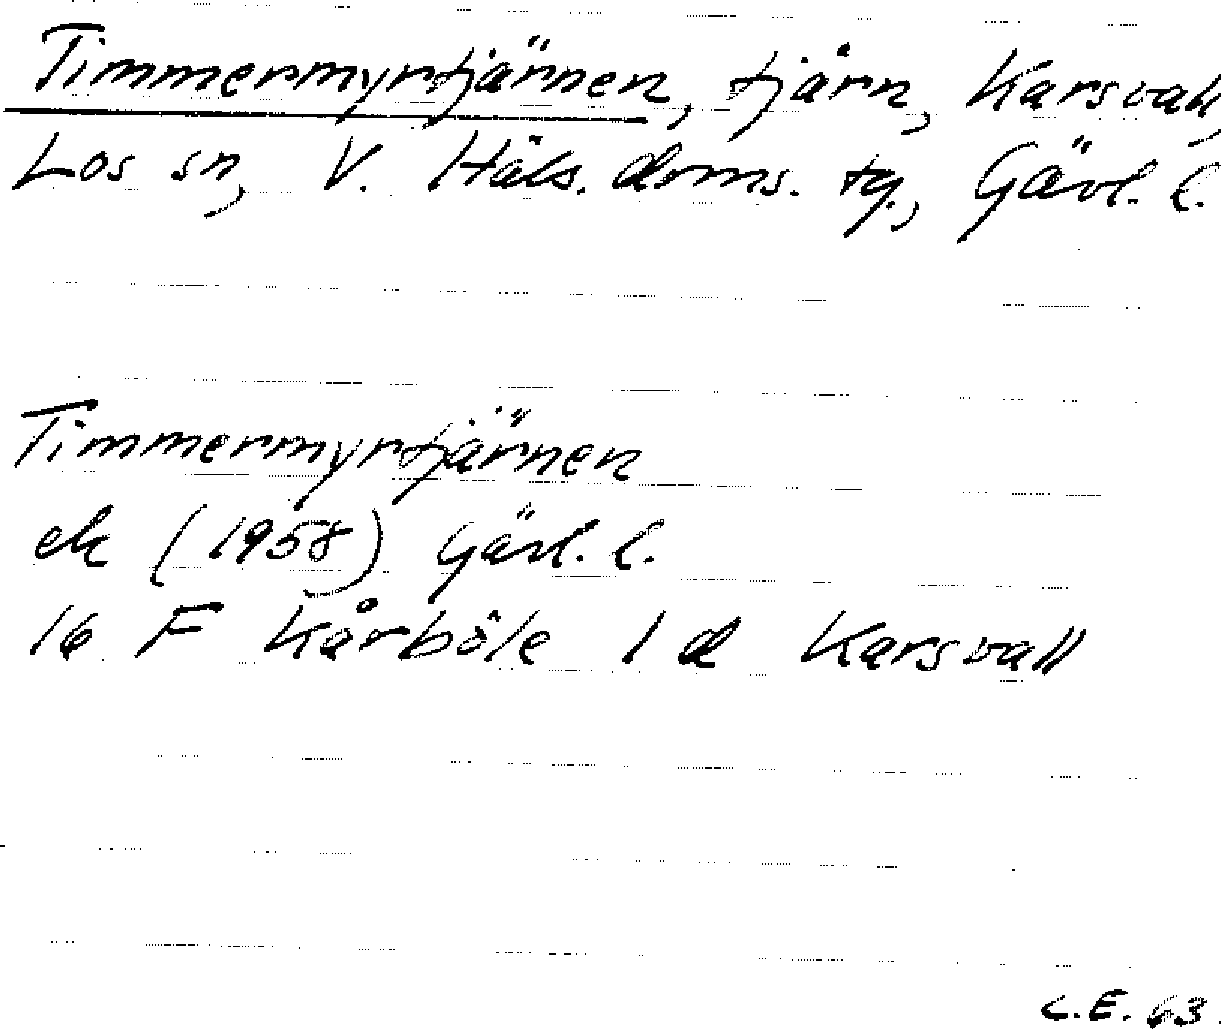 Timmermyrtjärnen, tjärn, Karsvall,
Los sn, V. Häls. doms. tg., Gävl. l.
Timmermyrtjärnen
ek (1958) Gävl. l.
16 F Kårböle 1 d Karsvall
C.E. 63.